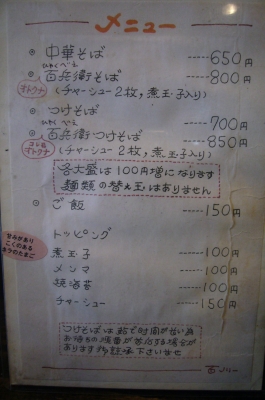 メニュー
中華そば -----650円
ひゃくべえ
百兵衛そば -----800円
オトクナ (チャーシュー2枚,煮玉子入り)
つけそば -----700円
ひゃくべえ
百兵衛つけそば -----850円
オトクナ (チャーシュー2枚,煮玉子入り)
各大盛は100円増になります
麺類の替え玉はありません
ご飯 -----150円
甘みがあり
こくのある
トッピング
煮玉子 -----100円
メンマ -----100円
焼海苔 -----100円
チャーシュー -----150円
つけそばは茹で時間が長い為
お待ちの順番が前後する場合が
あります御詫承下さいませ